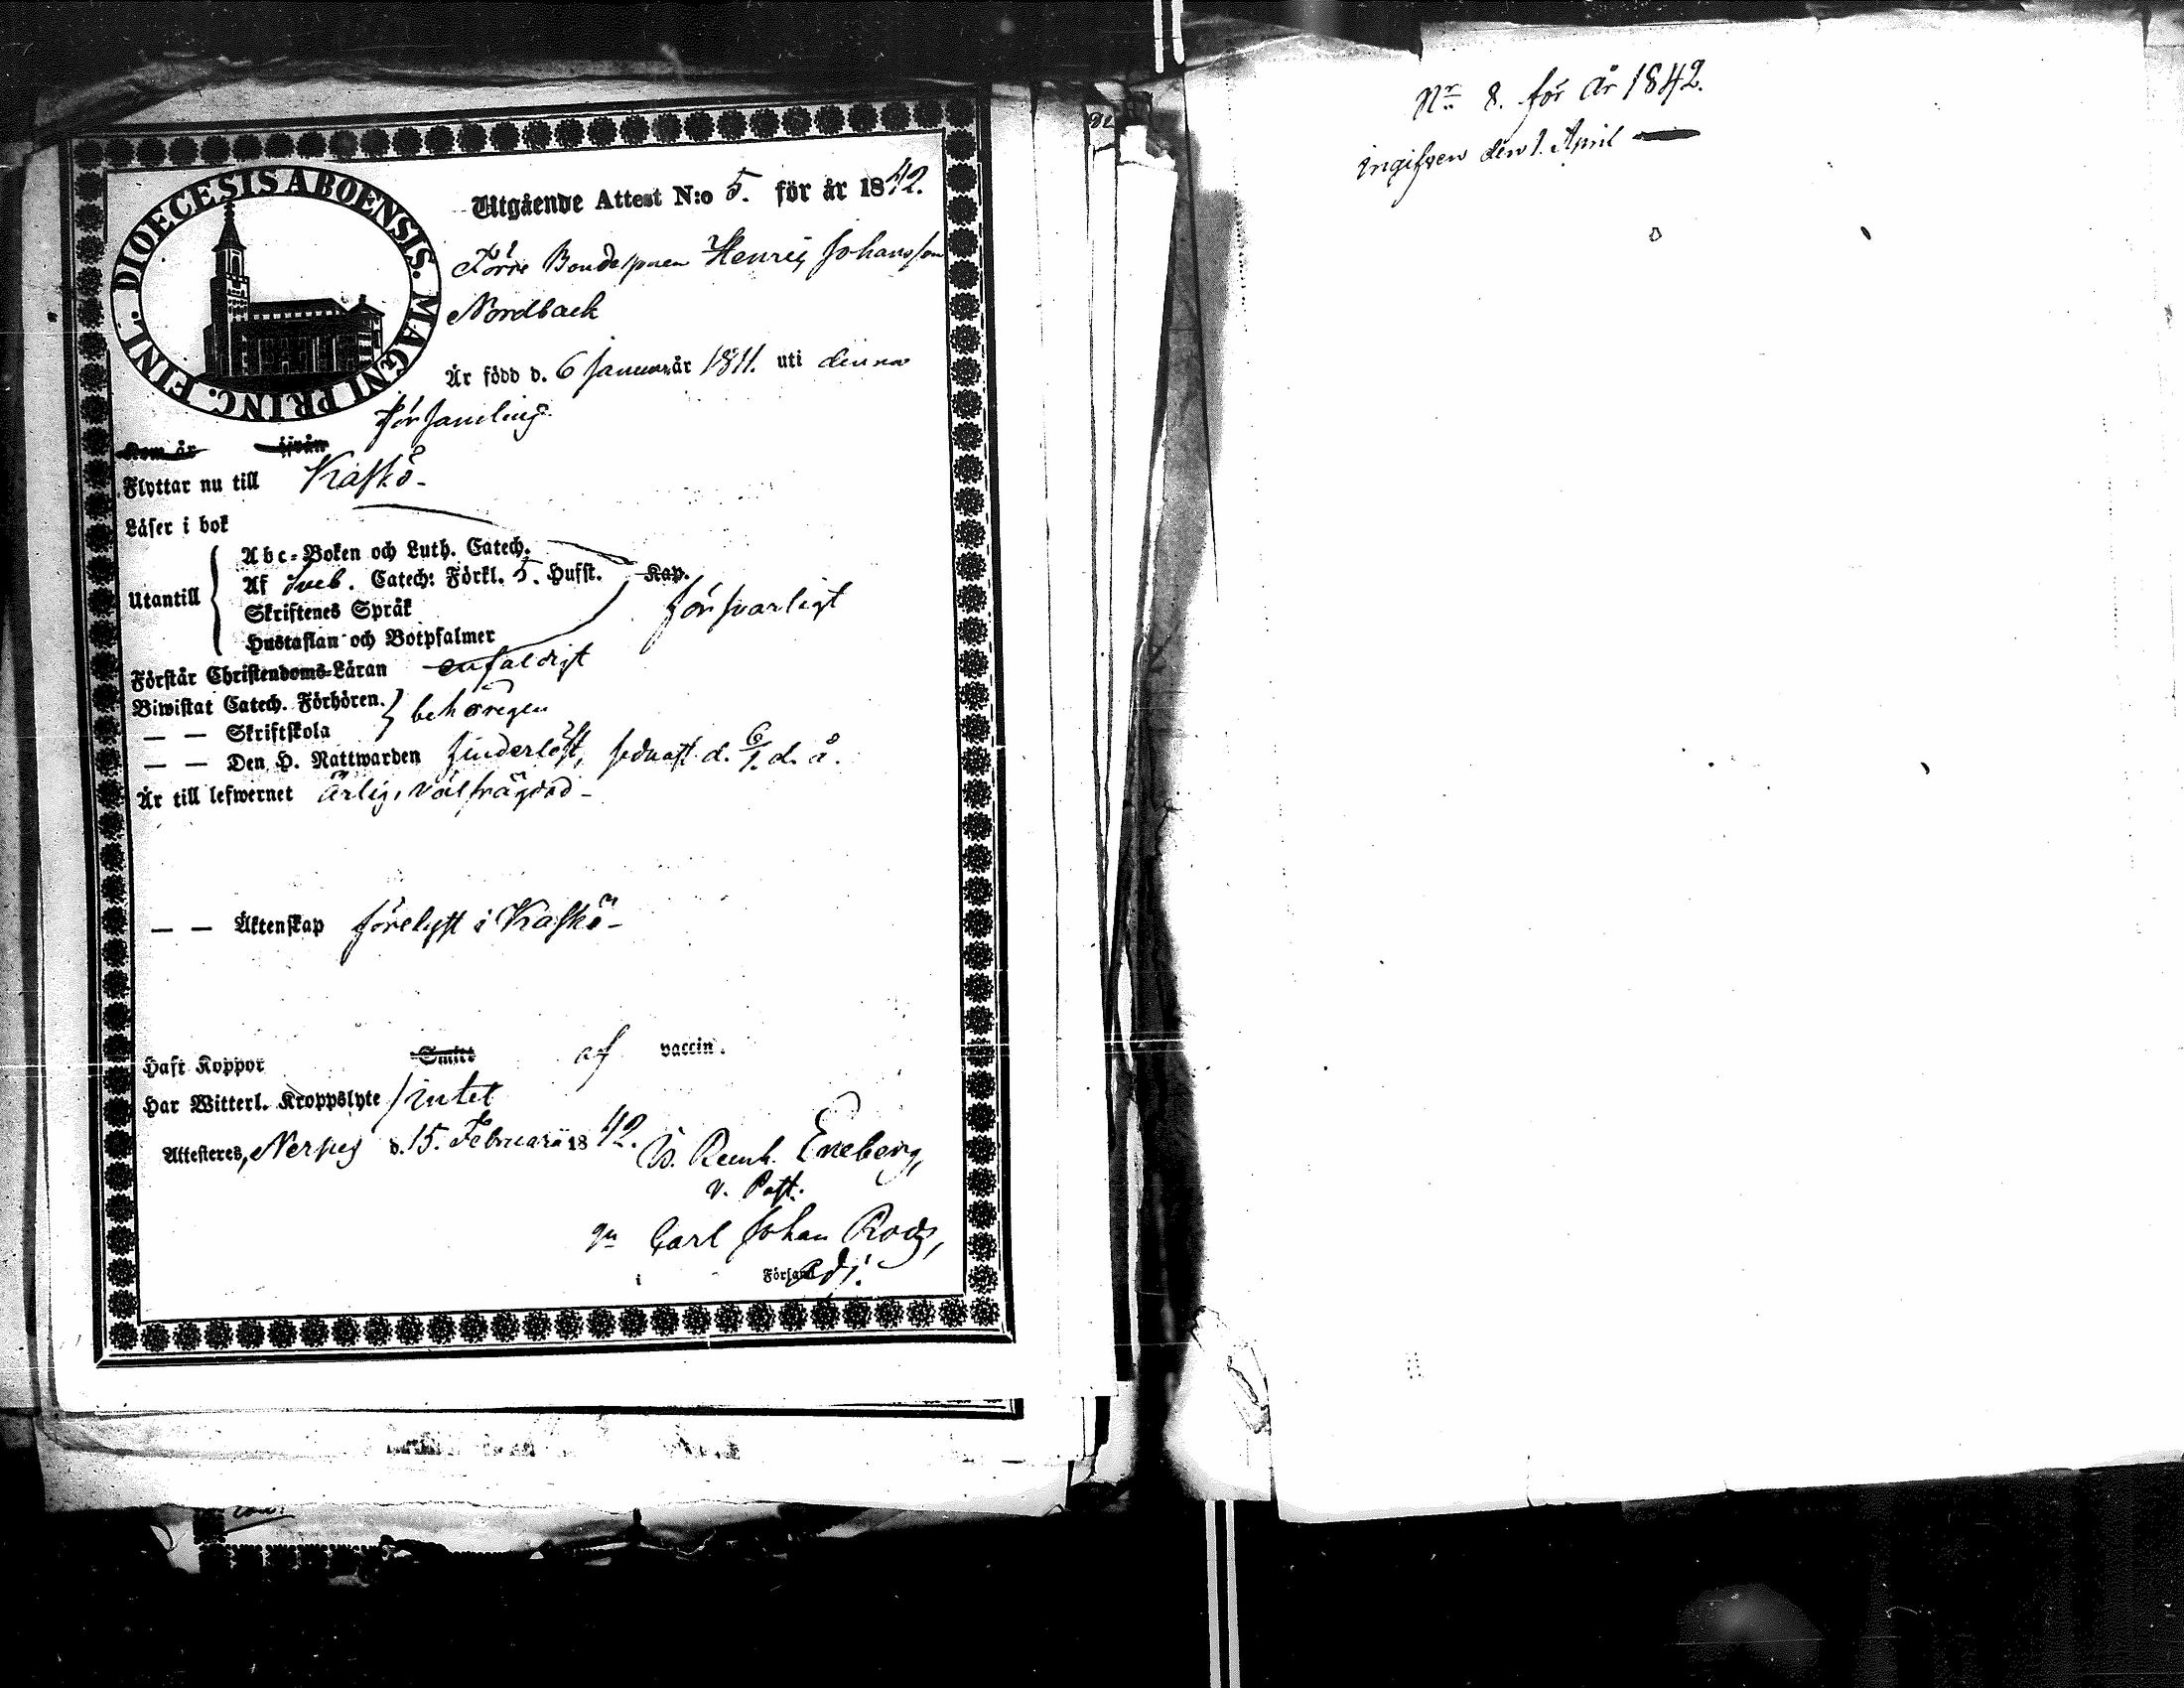 DIOECESIS ABOENSIS. MAGNI PRINC. FINL.
Utgående Attest N:o 5. för år 1842.
Förre Bondesonen Henric Johansson
Nordback
Är född d. 6 Januari år 1811. uti denna
församling
Kom år ifrån
Flyttar nu till Kaskö-
Läser i bok
Utantill
Abc-Boken och Luth. Catech.
Af Sveb. Catech: Förkl. 5. Hufst. Kap.
Skriftenes Språk
Hustaflan och Botpsalmer
försvarligt
Förstår Christendoms-Läran enfaldigt
Biwistat Catech. Förhören.
— — Skriftskola
behörigen
— — Den H. Nattwarden hinderlöst, sednast d. 6/1. d. å.
Är till lefwernet Ärlig, välfrägdad-
— — Äktenskap förelyst i Kaskö-
Haft Koppor Smitt af vaccin.
Har Witterl. Kroppslyte intet
Attesteres, Nerpes d. 15. Februari 1842.
Reinh. Eneberg,
v. Past.
gm Carl Johan
i Församl Adj.
Nr 8. för år 1842.
ingifven den 1. April